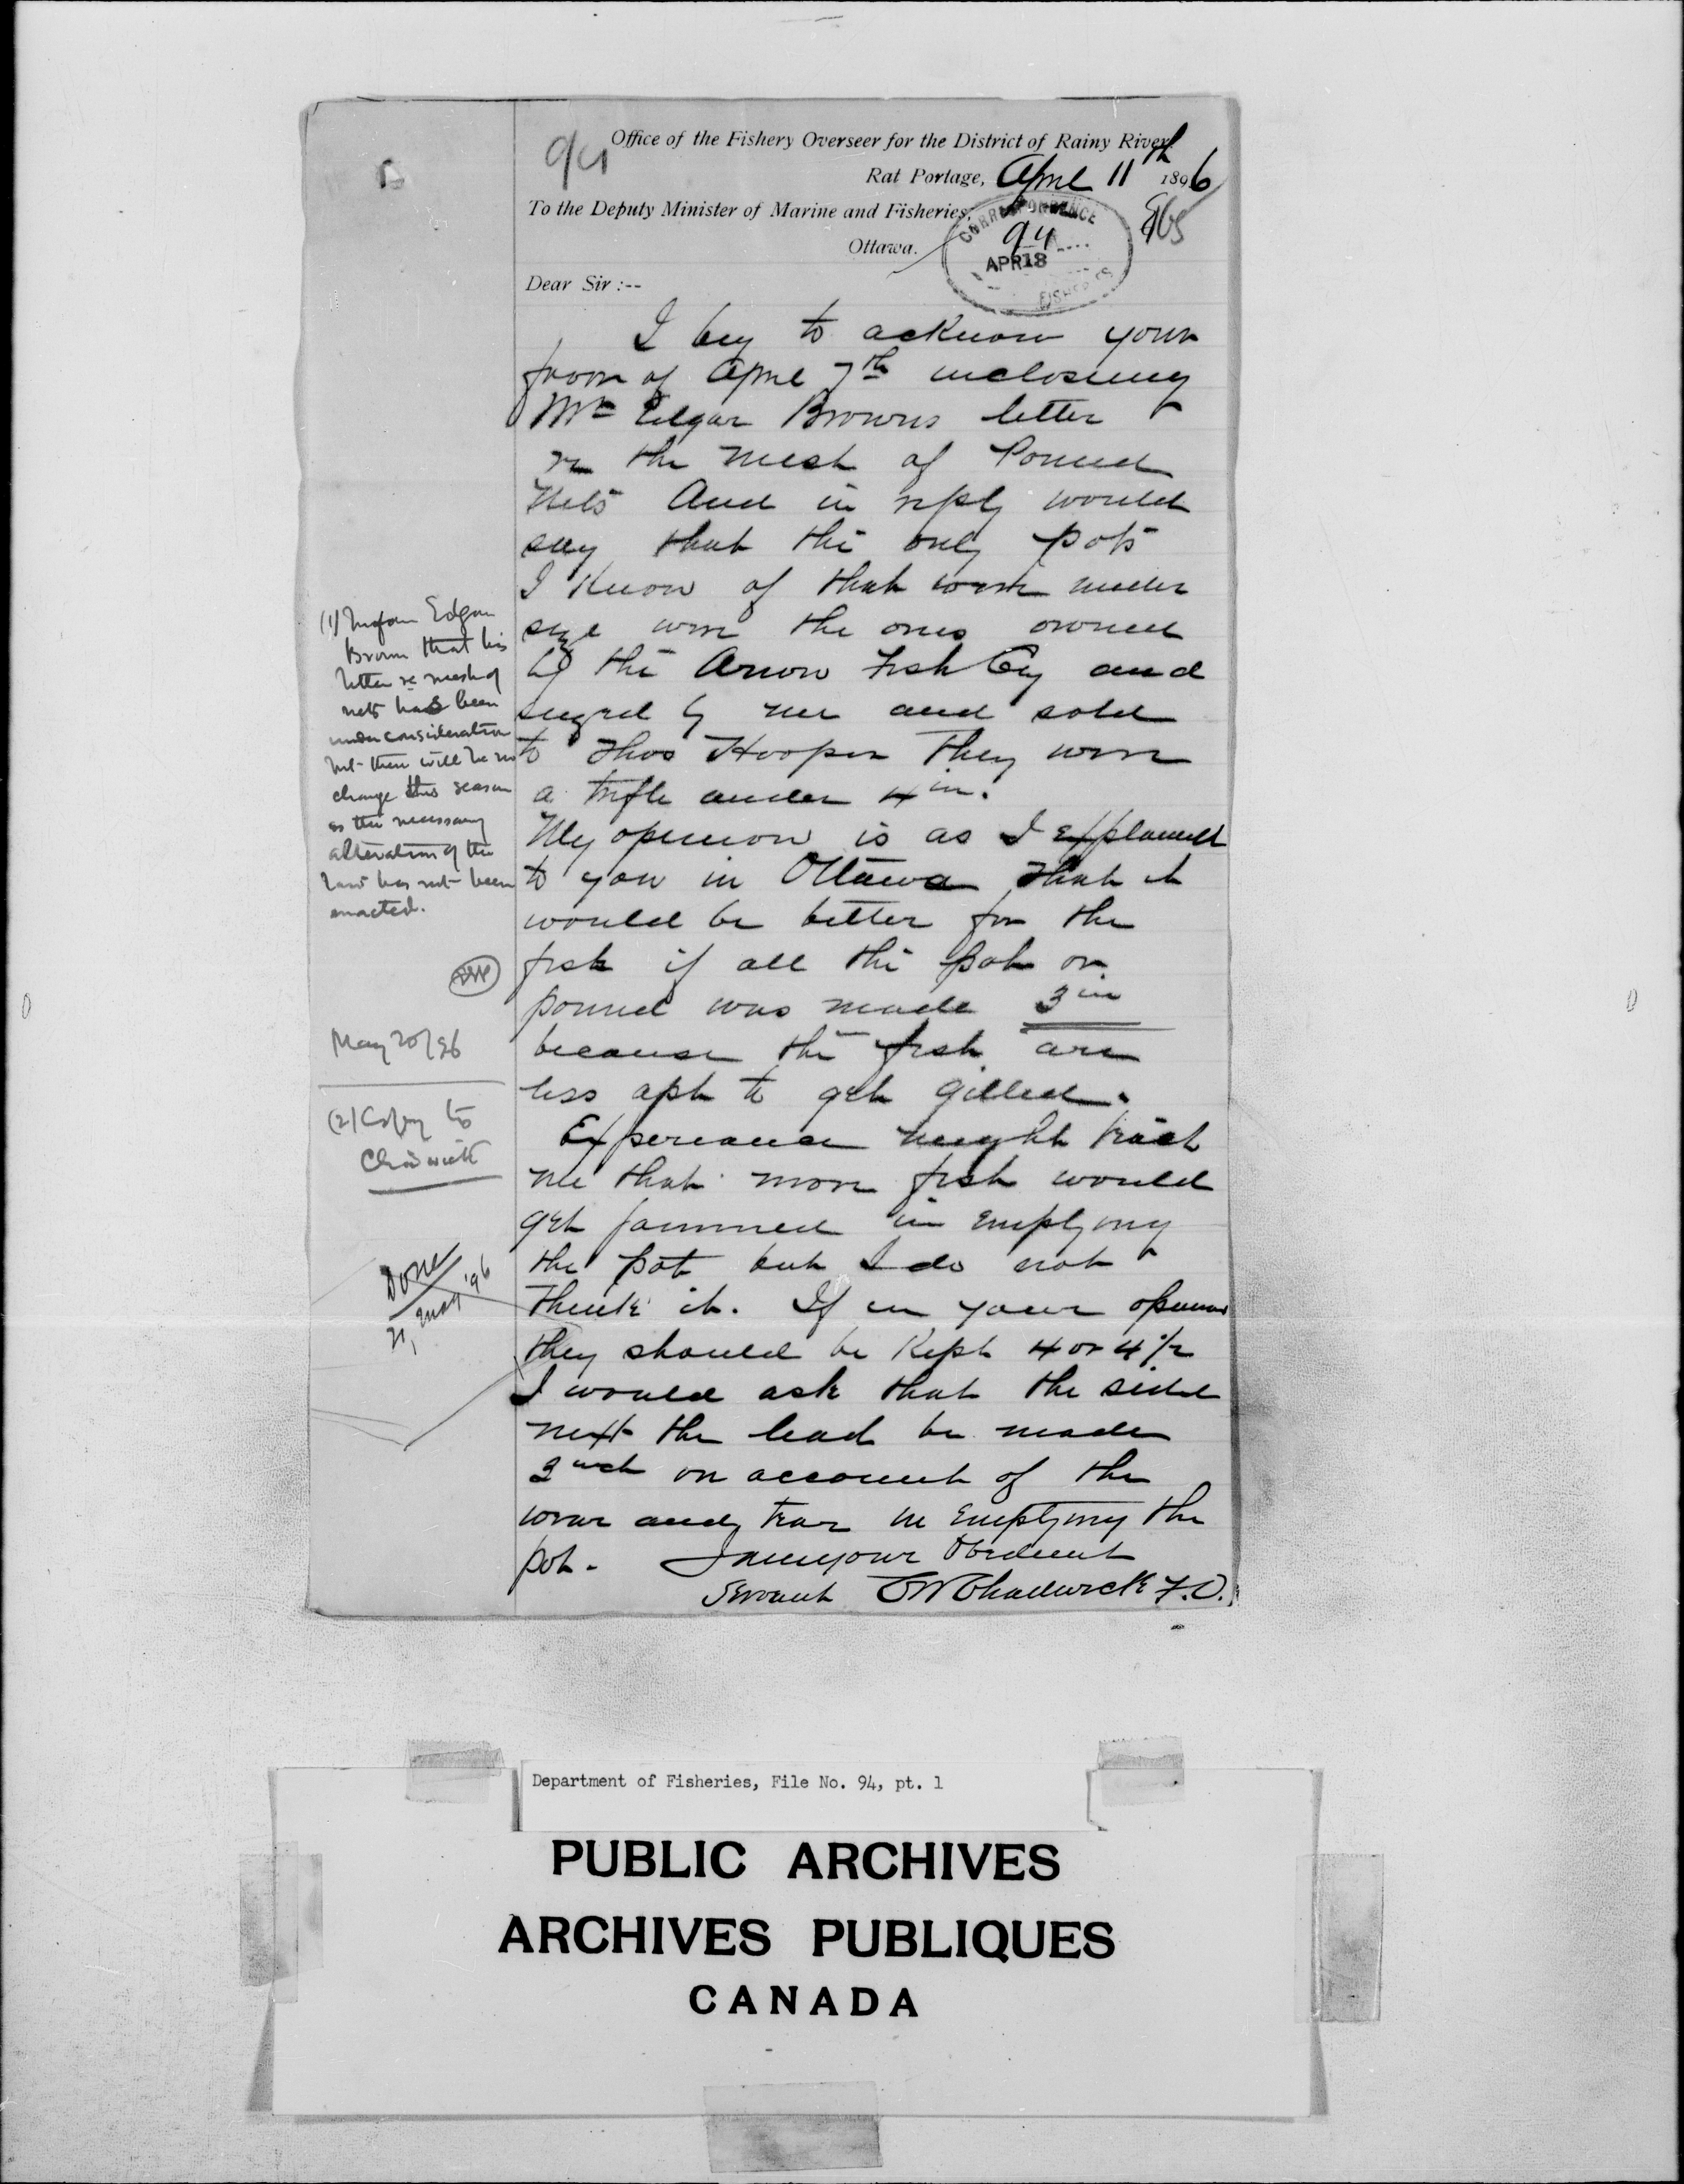 94
Office of the Fishery Overseer for the District of Rainy River.
Rat Portage, April 11th 1896
To the Deputy Minister of Marine and Fisheries,
Ottawa.
CORRESPONDENCE
94
APR 18
FISHERIES
Dear Sir :--
I beg to acknow your
favor of April 7th inclosing
Mr Edgar Browns letter
re the mesh of Pound
Nets And in reply would
say that the only pots
I know of that were under
size were the ones owned
by the Arrow Fish Coy and
seized by me and sold
to Thos Hooper They were
a trifle under 4 in.
My opinion is as I explained
to you in Ottawa that it
would be better for the
fish if all the pot or
pound was made 3 in
because the fish are
less apt to get gilled.
Experience might teach
me that more fish would
get jammed in emptying
the pot but I do not
think it. If in your opinion
they should be kept 4 or 4 1/2
I would ask that the side
next the lead be made
3 inch on account of the
wear and tear in emptying the
pot. I am your Obedient
Servant CW Chadwick F.O.
(1) Inform Edgar
Brown that his
letter re mesh of
nets has been
under consideration
but there will be no
change this season
as the necessary
alteration of the
law has not been
enacted.
May 20/96
(2) Copy to
Chadwick
Done
21, May '96
Department of Fisheries, File No. 94, pt. 1
PUBLIC ARCHIVES
ARCHIVES PUBLIQUES
CANADA